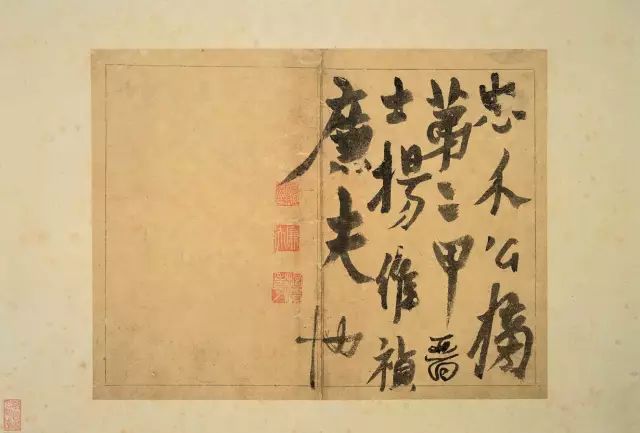 忠介公榜
第二甲晉
士楊維禎
廉夫